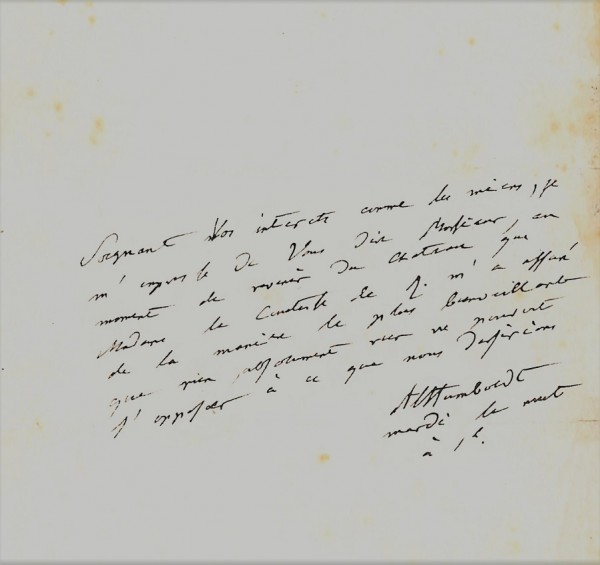 Soignant Vos interets comme les miens, je
m'empresse de Vous dire Monsieur, au
moment de revenir du chateau que
Madame la Comtesse de R. m'a assuré
de la manière la plus bienveillante
que rien absolument rien ne pouvait
s'opposer à ce que nous desirions
AlHumboldt
mardi la nuit
à 1h.